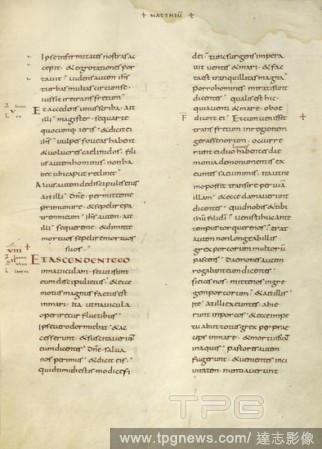 + MATTHEU
Ipse infirmitates nostras ac
cepit · & egrotationes por
tauit Uidens autem ihs
turbas multas circumse·
iussit ire transfretum
Et accedens unus scriba · ait
illi magister · sequar te
quocumq· ieris · & dicit ei
ihs uulpes foueas habent
& uolucres caeli nidos · fili
us autem hominis non ha
bet ubi caput reclinet
Alius autem de discipulis eius
ait illi · dne permitte me
primum ire · & sepelire pa
trem meum ihs autem · ait
illi sequere me · & dimitte
mortuos sepelire mortuos
suos
ET ASCENDENTE EO
in nauiculam · secuti sunt
eum discipuli eius · & ecce
motus magnus factus est
in mari · ita ut nauicula
operiretur fluctibus
Ipse uero dormiebat · & ac
cesserunt · & suscitauerunt
eum dicentes Dne · salua
nos perimus · & dicit eis
quid timidi estis modicae fi
dei · tunc surgens impera
uit uentis & mari · & fac
ta est tranquillitas magna
porro homines · mirati sunt
dicentes qualis est hic
quia uenti & mare · oboe
diunt ei Et cum uenisset
trans fretum in regionem
gerasenorum · occurre
runt ei duo habentes dae
monia de monumentis ex
euntes saeui nimis · ita ut ne
mo posset transire per uia
illam · & ecce clamauerunt
dicentes quid nobis & tibi
ihu fili di uenisti huc ante
tempus torquere nos · erat
autem non longe ab illis
grex porcorum multorum
pascens Daemones autem
rogabant eum dicentes
si eicis nos · mitte nos in gre
gem porcorum · & ait illis
ite · at illi exeuntes abie
runt in porcos · & ecce impe
tu abiit totus grex per prae
ceps in mare · & mortui sunt
in aquis pastores autem
fugerunt · & uenientes in ci
uitatem · nuntiauerunt
TPG
www.tpgnews.com / 達志影像